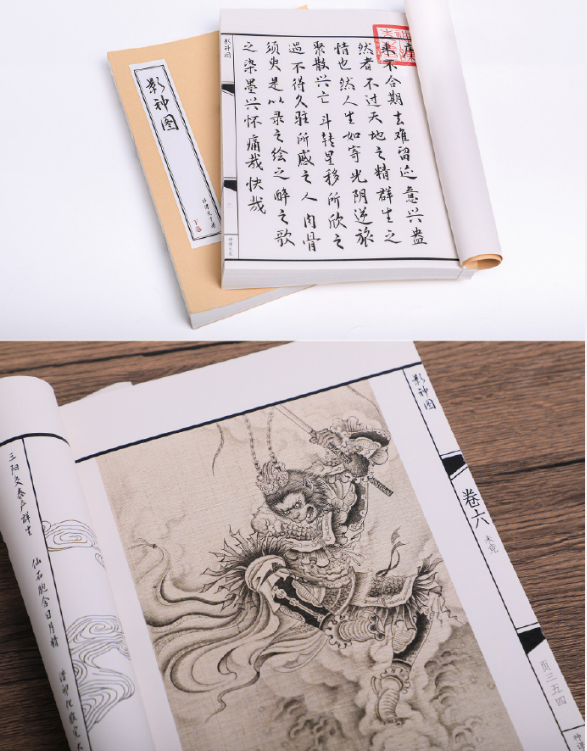 影神图
序
来不合期去难留迹意兴盎
然者不过天地之精群生之
情也然人生如寄光阴逆旅
聚散兴亡斗转星移所欣之
遇不得久驻所感之人肉骨
须臾是以录之绘之醉之歌
之染墨兴怀痛哉快哉
影神图
影神图
卷六
未竟
页三五四
三阳交泰产群生
仙石胞含日月精
借卵化猴完